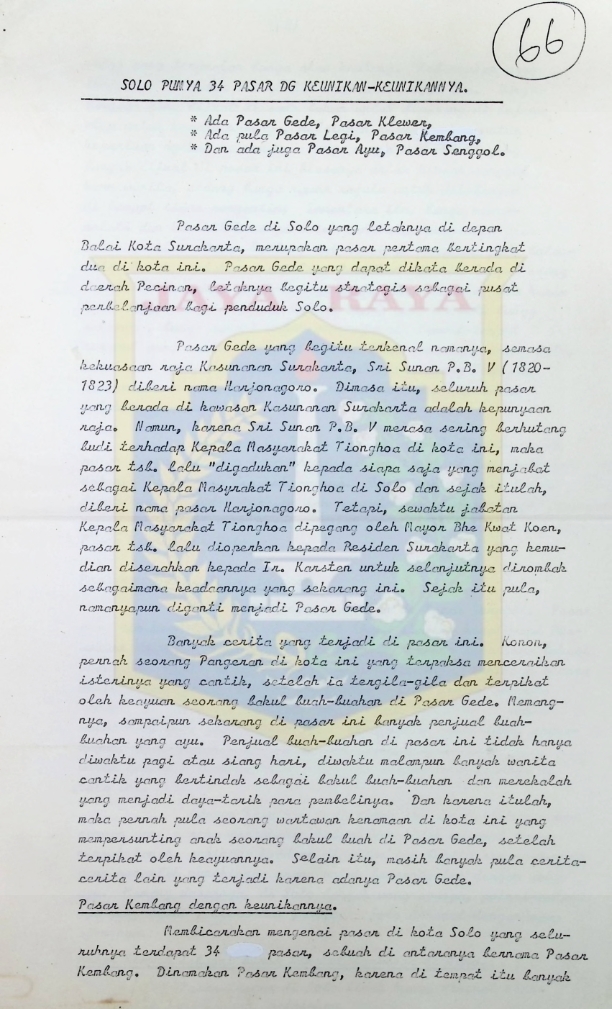 66
SOLO PUNYA 34 PASAR DG KEUNIKAN-KEUNIKANNYA.
* Ada Pasar Gede, Pasar Klewer,
* Ada pula Pasar Legi, Pasar Kembang,
* Dan ada juga Pasar Ayu, Pasar Senggol.
JAYA RAYA
Pasar Gede di Solo yang letaknya di depan
Balai Kota Surakarta, merupakan pasar pertama bertingkat
dua di kota ini. Pasar Gede yang dapat dikata berada di
daerah Pecinan, letaknya begitu strategis sebagai pusat
perbelanjaan bagi penduduk Solo.
Pasar Gede yang begitu terkenal namanya, semasa
kekuasaan raja Kasunanan Surakarta, Sri Sunan P.B. V (1820-
1823) diberi nama Harjonagoro. Dimasa itu, seluruh pasar
yang berada di kawasan Kasunanan Surakarta adalah kepunyaan
raja. Namun, karena Sri Sunan P.B. V merasa sering berhutang
budi terhadap Kepala Masyarakat Tionghoa di kota ini, maka
pasar tsb. lalu "digadukan" kepada siapa saja yang menjabat
sebagai Kepala Masyrakat Tionghoa di Solo dan sejak itulah,
diberi nama pasar Harjonagoro. Tetapi, sewaktu jabatan
Kepala Masyarakat Tionghoa dipegang oleh Mayor Bhe Kwat Koen,
pasar tsb. lalu dioperkan kepada Residen Surakarta yang kemu-
dian diserahkan kepada Ir. Karsten untuk selanjutnya dirombak
sebagaimana keadaannya yang sekarang ini. Sejak itu pula,
namanyapun diganti menjadi Pasar Gede.
Banyak cerita yang terjadi di pasar ini. Konon,
pernah seorang Pangeran di kota ini yang terpaksa menceraikan
isterinya yang cantik, setelah ia tergila-gila dan terpikat
oleh keayuan seorang bakul buah-buahan di Pasar Gede. Memang-
nya, sampaipun sekarang di pasar ini banyak penjual buah-
buahan yang ayu. Penjual buah-buahan di pasar ini tidak hanya
diwaktu pagi atau siang hari, diwaktu malampun banyak wanita
cantik yang bertindak sebagai bakul buah-buahan dan merekalah
yang menjadi daya-tarik para pembelinya. Dan karena itulah,
maka pernah pula seorang wartawan kenamaan di kota ini yang
mempersunting anak seorang bakul buah di Pasar Gede, setelah
terpikat oleh keayuannya. Selain itu, masih banyak pula cerita-
cerita lain yang terjadi karena adanya Pasar Gede.
Pasar Kembang dengan keunikannya.
Membicarakan mengenai pasar di kota Solo yang selu-
ruhnya terdapat 34 pasar, sebuah di antaranya bernama Pasar
Kembang. Dinamakan Pasar Kembang, karena di tempat itu banyak